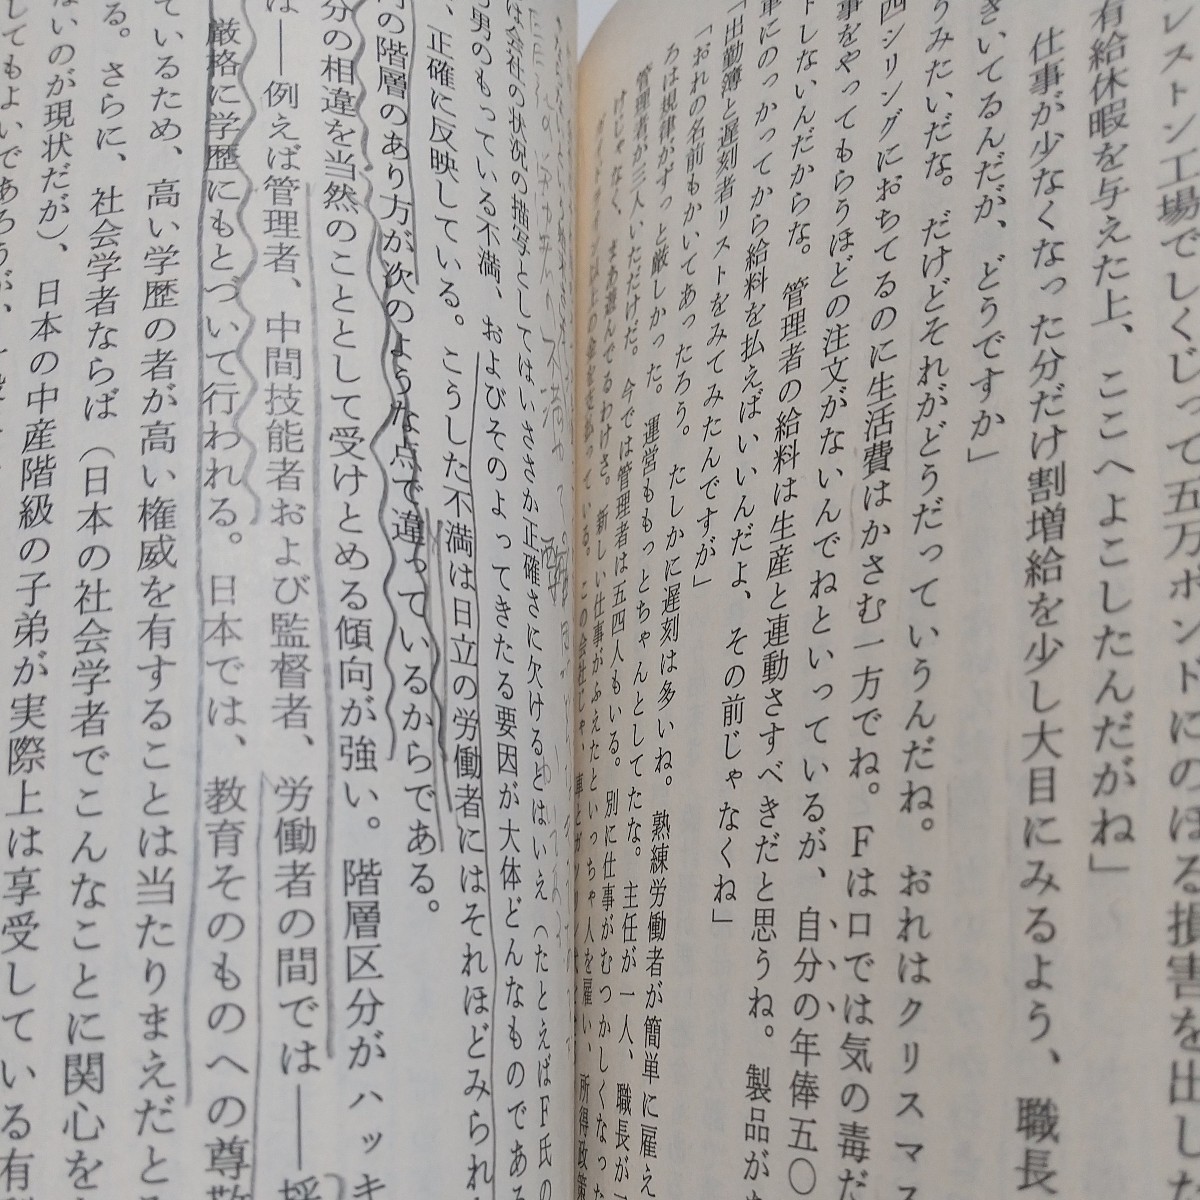 レストン工場でしくじって五万ポンドにのぼる損害を出した
有給休暇を与えた上、ここへよこしたんだがね」
仕事が少なくなった分だけ割増給を少し大目にみるよう、職長
きいてるんだが、どうですか」
うみたいだな。だけどそれがどうだっていうんだね。おれはクリスマス
四シリングにおちてるのに生活費はかさむ一方でね。Fは口では気の毒だ
事をやってもらうほどの注文がないんでねといっているが、自分の年俸五〇
トしないんだからな。管理者の給料は生産と連動さすべきだと思うね。製品が
車にのっかってから給料を払えばいいんだよ、その前じゃなくね」
「出勤簿と遅刻者リストをみてみたんですが」
「おれの名前もかいてあったろう。たしかに遅刻は多いね。熟練労働者が簡単に雇え
ろは規律がずっと厳しかった。運営ももっとちゃんとしてたな。主任が一人、職長が
管理者が三人いただけだ。今では管理者は五四人もいる。別に仕事がむつかしくなった
けじゃなく、まあ遊んでるわけさ。新しい仕事がふえたといっちゃ人を雇い、所得政策
は会社の状況の描写としてはいささか正確さに欠けるとはいえ(たとえばF氏の
男のもっている不満、およびそのよってきたる要因が大体どんなものである
、正確に反映している。こうした不満は日立の労働者にはそれほどみられ
の階層のあり方が次のような点で違っているからである。
分の相違を当然のこととして受けとめる傾向が強い。階層区分がハッキ
は――例えば管理者、中間技能者および監督者、労働者の間では――採
厳格に学歴にもとづいて行われる。日本では、教育そのものへの尊敬
ているため、高い学歴の者が高い権威を有することは当たりまえだと
る。さらに、社会学者ならば(日本の社会学者でこんなことに関心を
ないのが現状だが)、日本の中産階級の子弟が実際上は享受している有
してもよいであろうが、